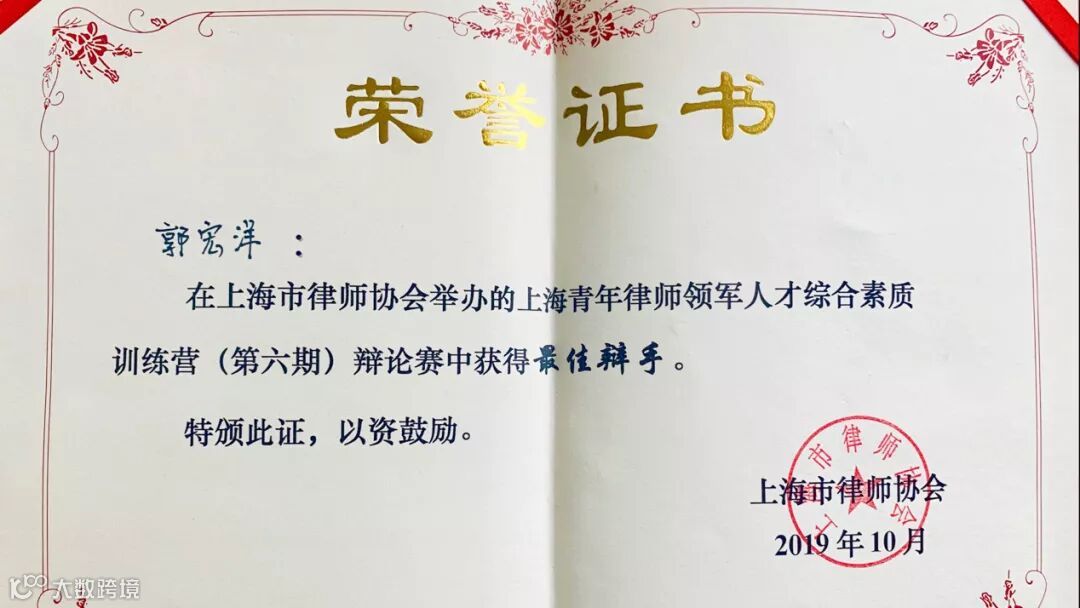 荣誉证书
郭宏洋：
在上海市律师协会举办的上海青年律师领军人才综合素质
训练营（第六期）辩论赛中获得最佳辩手。
特颁此证，以资鼓励。
上海市律师协会
上海市律师协会
2019年10月
大数跨境